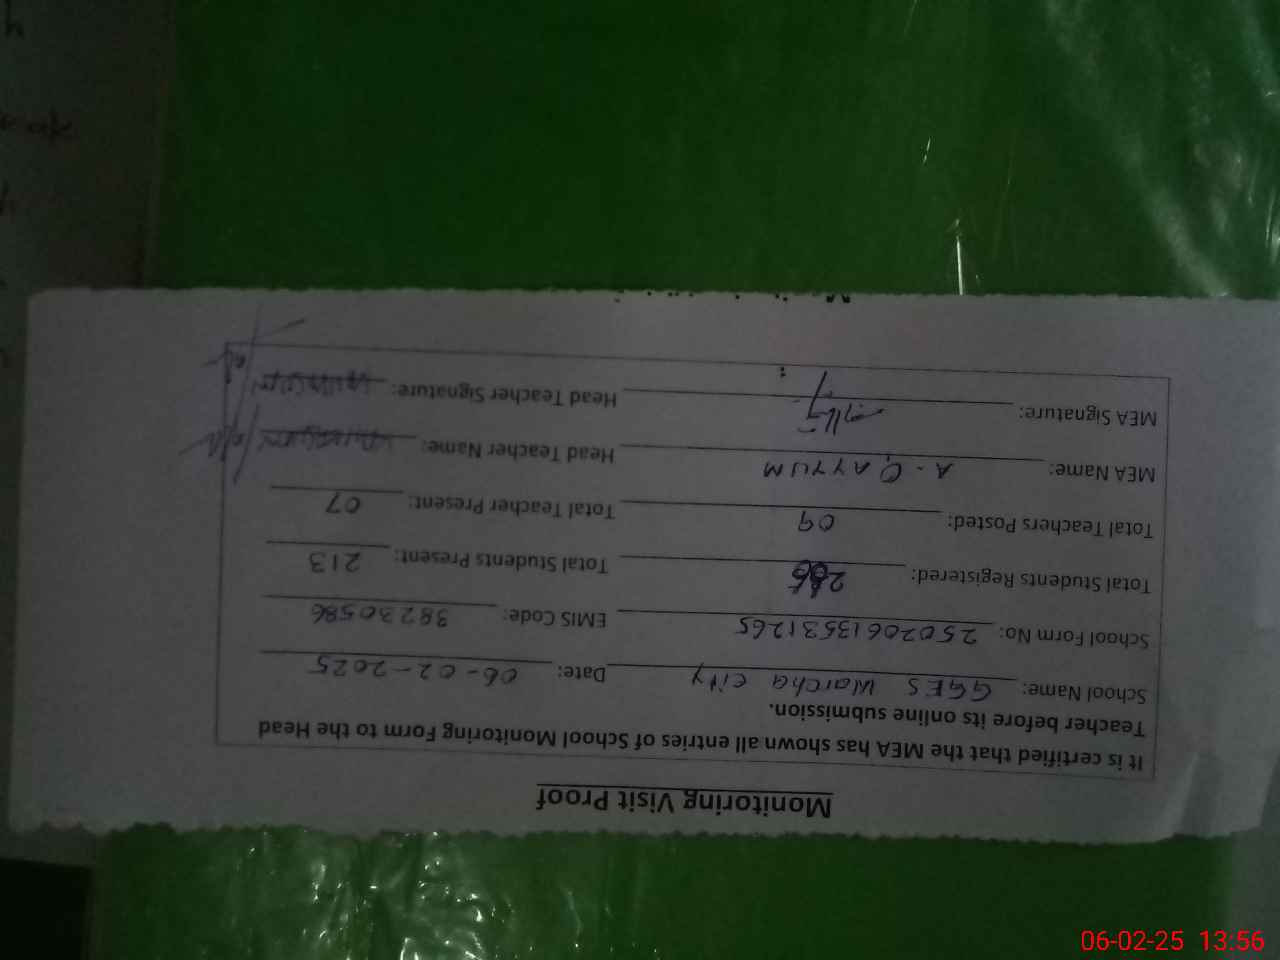 Monitoring Visit Proof
It is certified that the MEA has shown all entries of School Monitoring Form to the Head
Teacher before its online submission.
School Name: GGES Warcha City Date: 06-02-2025
School Form No: 250206135531265 EMIS Code: 38230586
Total Students Registered: Total Students Present: 213
Total Teachers Posted: 09 Total Teacher Present: 07
MEA Name: A. QAYYUM Head Teacher Name:
MEA Signature: Head Teacher Signature:
06-02-25 13:56